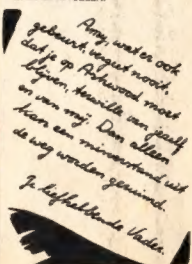 Amy, wat er ook
gebeurt, vergeet nooit
dat je op Ashwood moet
blijven, terwille van jezelf
en van mij. Dan alleen
kan een misverstand uit
de weg worden geruimd.
Je liefhebbende Vader.